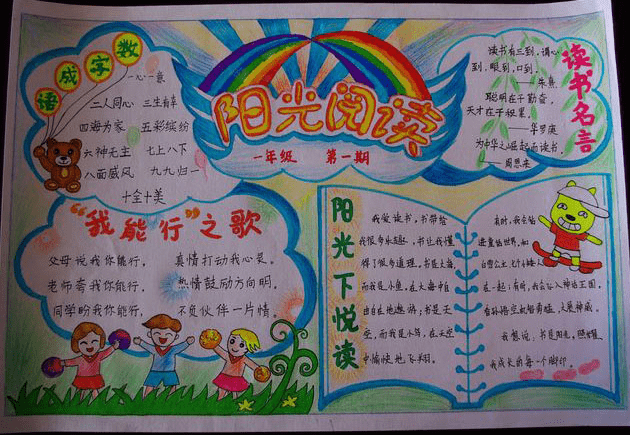 数字成语
一心一意
二人同心 三生有幸
四海为家 五彩缤纷
六神无主 七上八下
八面威风 九九归一
十全十美
阳光阅读
一年级 第一期
读书名言
读书有三到，谓心
到，眼到，口到。
——朱熹
聪明在于勤奋，
天才在于积累。
——华罗庚
为中华之崛起而读书。
——周恩来
“我能行”之歌
父母说我你能行， 真情打动我心灵。
老师夸我你能行， 热情鼓励方向明。
同学盼我你能行， 不负伙伴一片情。
阳光下悦读
我爱读书，书带给
我很多乐趣，书让我懂
得了很多道理。书是大海，
而我是小鱼，在大海中自
由自在地遨游；书是天
空，而我是小鸟，在天空
中愉快地飞翔。
有时，我会钻
进童话世界，和
白雪公主、七个小矮人
在一起；有时，我会
神话王国，
看孙悟空
我想说，书是阳光，照耀
我成长的每一个脚印。